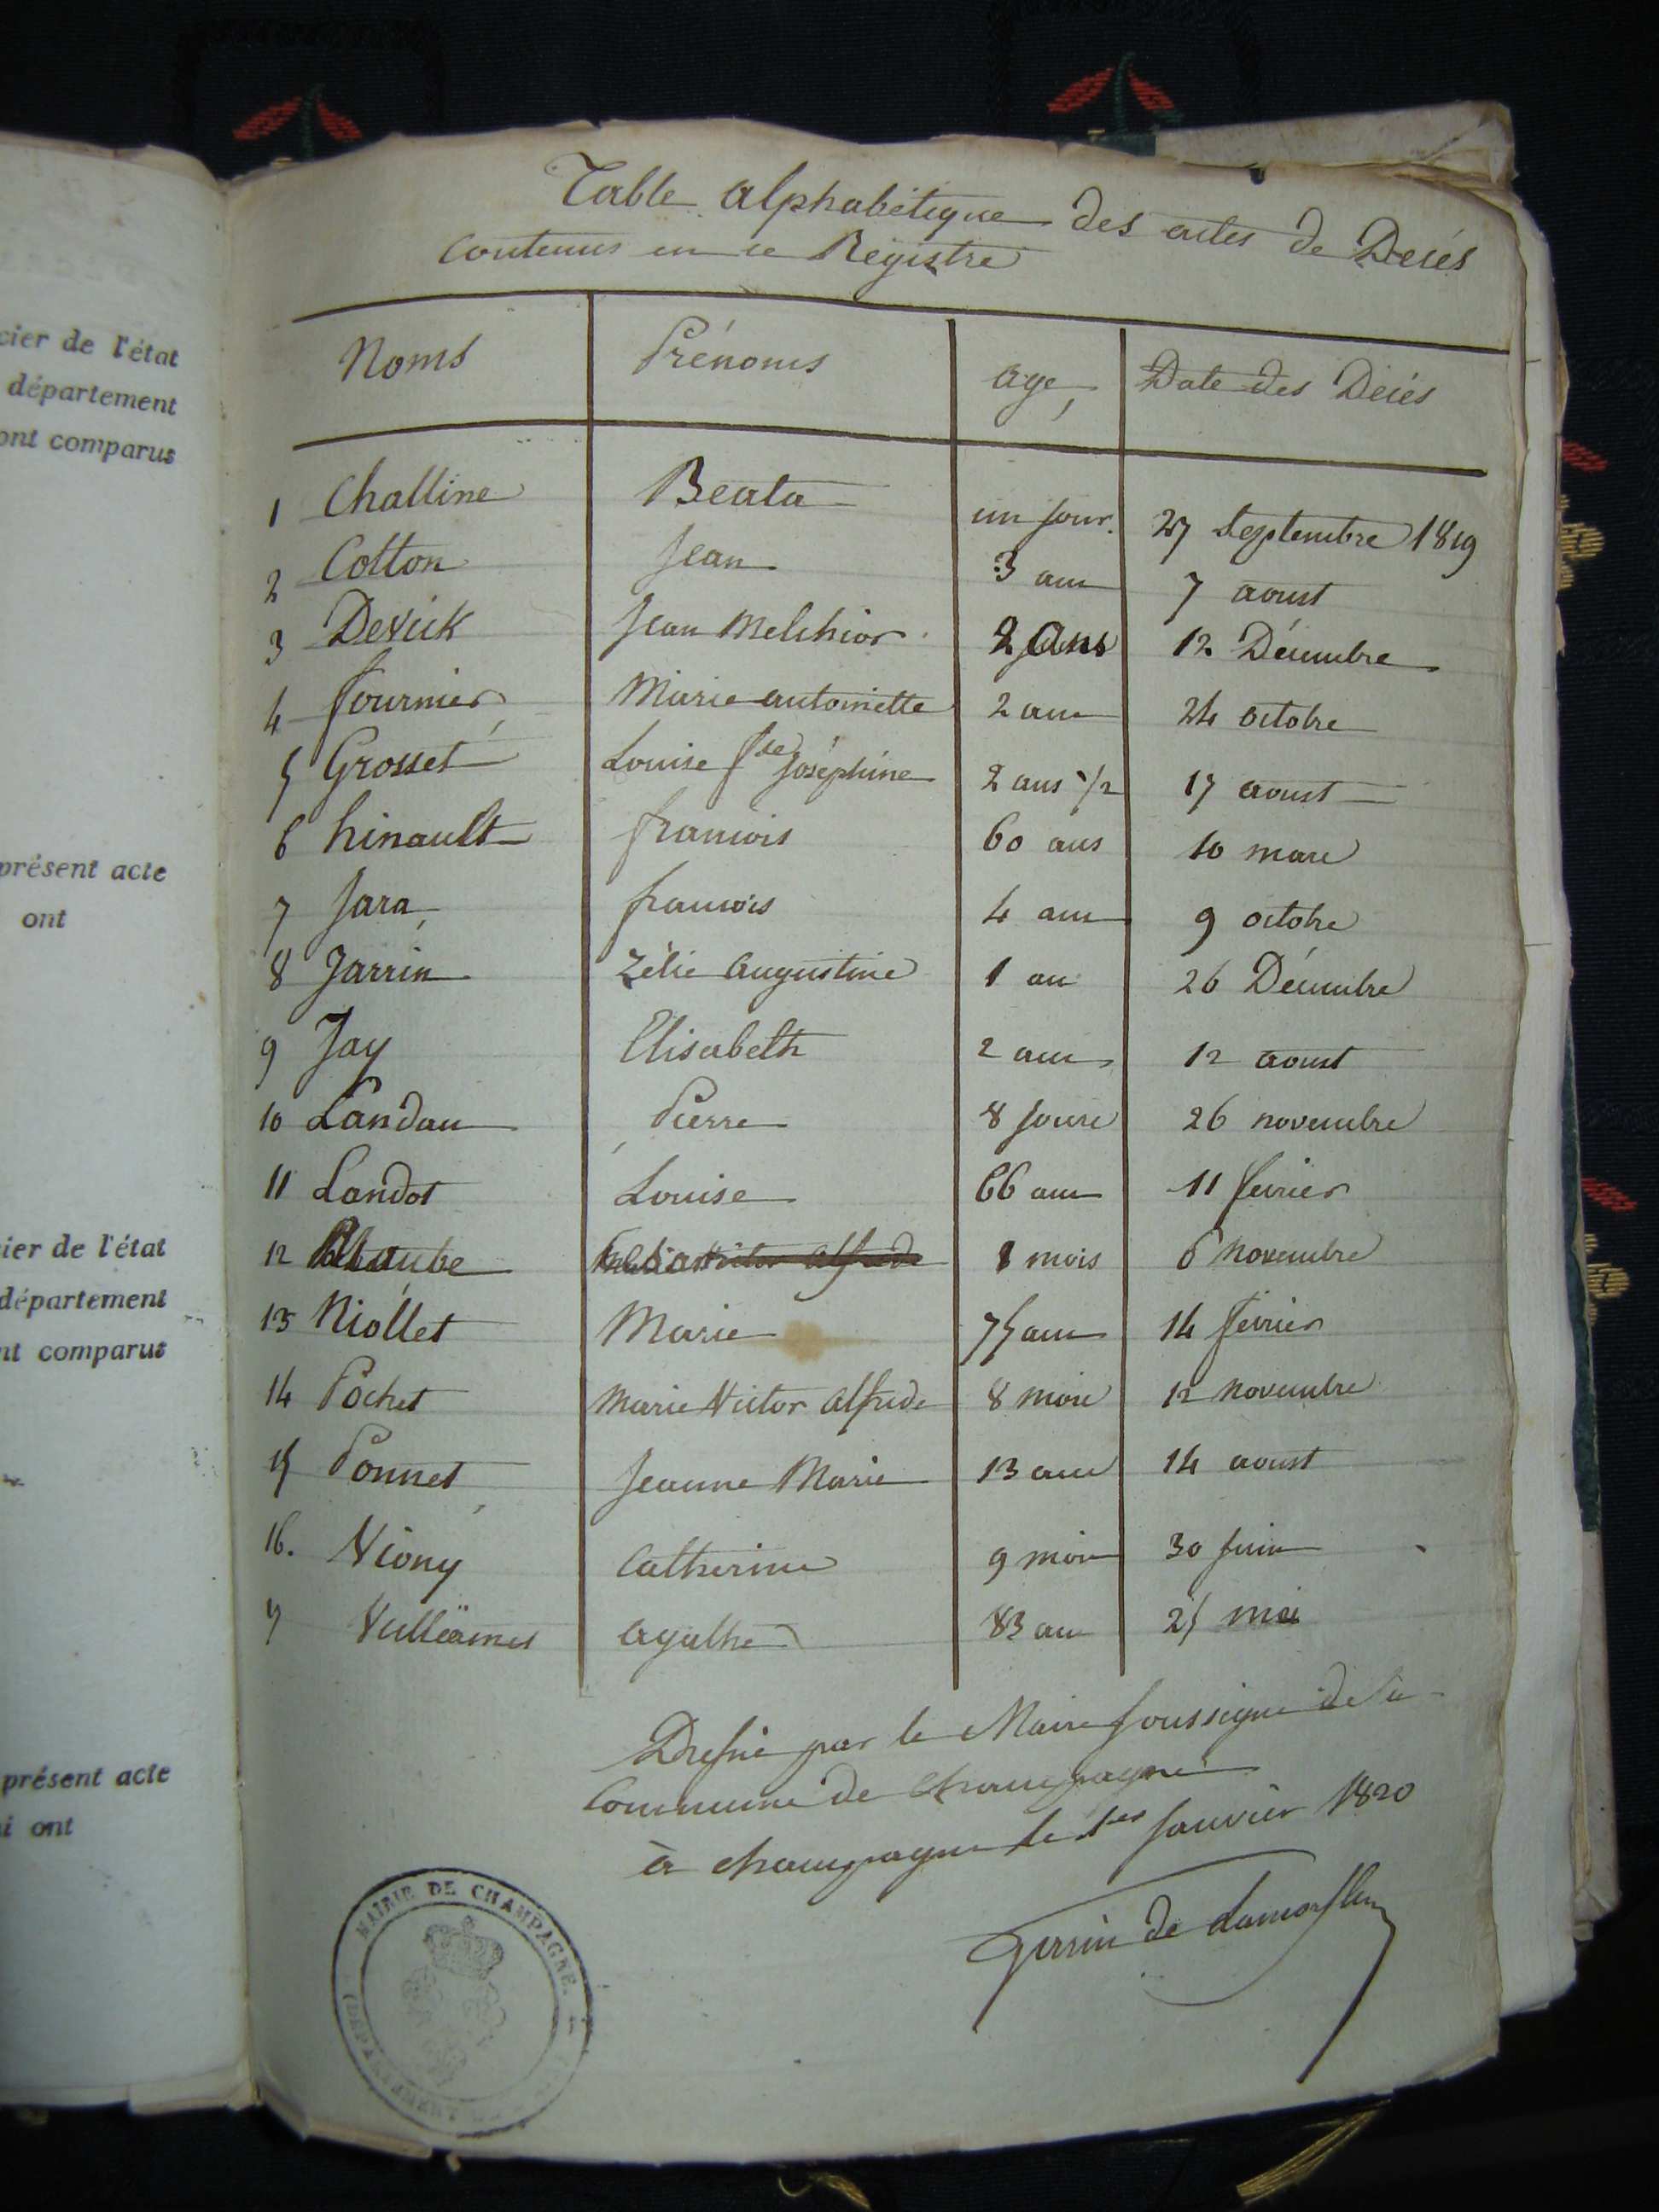 cier de l'état
département
ont comparus
présent acte
ont
ier de l'état
département
nt comparus
présent acte
i ont
Table alphabétique des actes de Décés
Contenus en ce Régistre
Noms Prénoms age Date des Décés
1 Challine Beata un jour. 27 Septembre 1819
2 Cotton Jean 3 ans 7 aoust
3 Jean Melchior 2 ans 12 Décembre
4 fournier Marie antoinette 2 ans 24 octobre
5 Grosset Louise fse Joséphine 2 ans 1/2 17 aoust
6 hinault francois 60 ans 10 mars
7 Jara francois 4 ans 9 octobre
8 Jarrin Zélie Augustine 1 an 26 Décembre
9 Jay Elisabeth 2 ans 12 aoust
10 Landau Pierre 8 jours 26 novembre
11 Landot Louise 66 ans 11 fevrier
12 mois 6 Novembre
13 Niollet Marie 75 ans 14 fevrier
14 Pochet Marie Victor alfred 8 mois 12 novembre
15 Ponnet Jeanne Marie 13 ans 14 aoust
16. Viony Catherine 9 mois 30 juin
17 agathe 83 ans 25 mai
Dressé par le Maire soussigné de la
Commune de Champagne
à champagne le 1er Janvier 1820
de
MAIRIE DE CHAMPAGNE